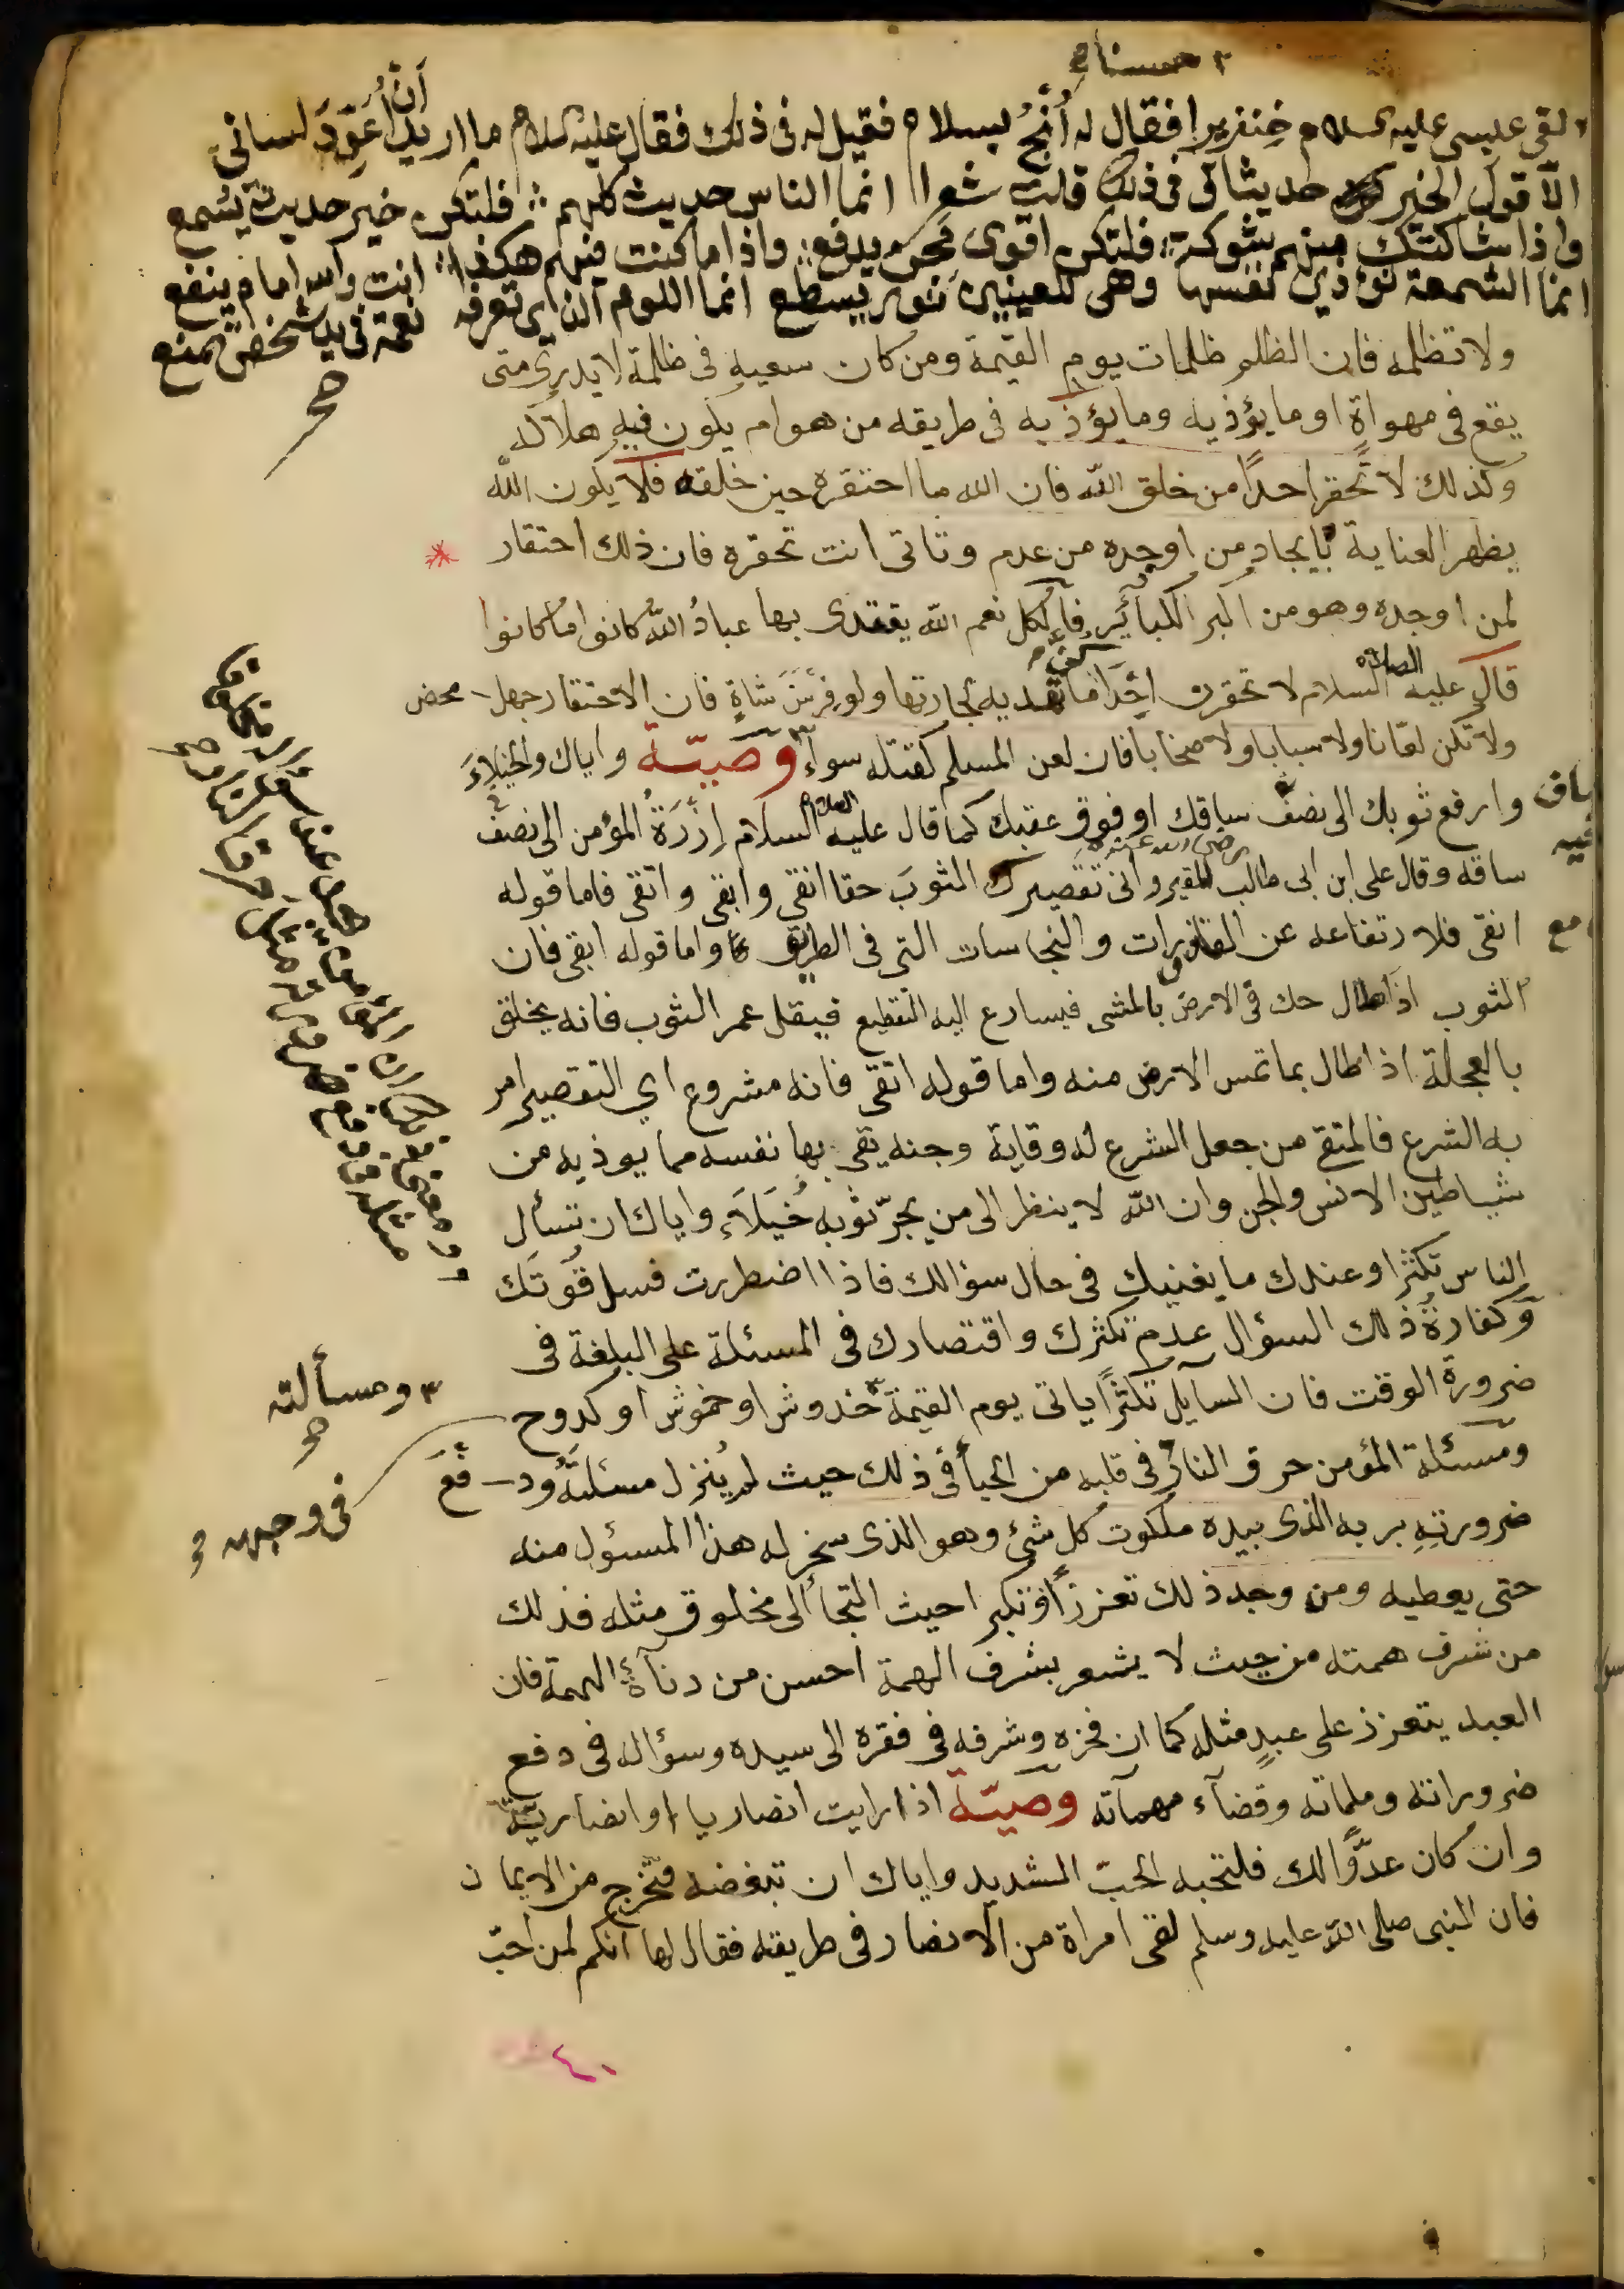 لقى عيسى عليه السلام خنزيرا فقال له أنج بسلام فقيل له فى ذلك فقال عليه السلام ما اريد أن أعوّد لسانى
الّا قول الخير فى ذلك قلت شعرا انما الناس حديث كلهم فلتكن خير حديث يسمع
واذا شاكتك منهم شوكة فلتكن اقوى مجن يدفع واذا ما كنت فيهم هكذا انت والله امام ينفع
انما الشمعة تؤذي نفسها وهى للعينين نور يسطع انما اللوم الذي تعرفه نعمة فى يد شخص تمنع
ولا تظلمه فان الظلم ظلمات يوم القيمة ومن كان سعيه فى ظلمة لا يدرى متى
يقع فى مهواة او ما يؤذيه وما يؤذيه فى طريقه من هوام يكون فيه هلاكه
وكذلك لا تحقر احدًا من خلق الله فان الله ما احتقره حين خلقه فلا يكون الله
يظهر العناية بايجاد من اوجده من عدم وتاتى انت تحقره فان ذلك احتقار
لمن اوجده وهو من اكبر الكبائر فالكل نعم الله يقتدى بها عباد الله كانوا ما كانوا
قال عليه الصلاة السلام لا تحقرن احداكن ما تهديه لجارتها ولو فرسن شاة فان الاحتقار جهل محض
ولا تكن لعّانا ولا سبابا ولا صخابا فان لعن المسلم كقتله سواء وصيّة واياك والخيلاء
وارفع ثوبك الى نصف ساقك او فوق عقبك كما قال عليه الصلاة السلام إزرة المؤمن الى نصف
ساقه وقال على ابن ابى طالب رضى الله عنه تقصيرك الثوب حقا انقى وابقى واتقى فاما قوله
انقى فلارتفاعه عن القاذورات والنجاسات التى فى الطريق واما قوله ابقى فان
الثوب اذا طال حك فى الارض بالمشى فيسارع اليه التقطيع فيقل عمر الثوب فانه يخلق
بالعجلة اذا طال بما تمس الارض منه واما قوله اتقى فانه مشروع اي التقصير امر
به الشرع فالمتقى من جعل الشرع له وقاية وجنه يتقى بها نفسه مما يوذيه من
شياطين الانس والجن وان الله لا ينظر الى من يجرّ ثوبه خيلاء واياك ان تسأل
الناس تكثرا وعندك ما يغنيك فى حال سؤالك فاذا اضطررت فسل قوتك
وكفارة ذلك السؤال عدم تكثرك واقتصارك فى المسئلة على البلغة فى
ضرورة الوقت فان السايل تكثرًا ياتى يوم القيمة خدوش او خموش او كدوح
ومسألته
فى وجهه
ومسئلة المؤمن حرق النار فى قلبه من الحيأ فى ذلك حيث لم ينزل مسئلته ودفع
ضرورته بربه الذى بيده ملكوت كل شئ وهو الذى سخر له هذا المسئول منه
حتى يعطيه ومن وجد ذلك تعززًا وتكبرا حيث التجأ الى مخلوق مثله فذلك
من شرف همته من حيث لا يشعر بشرف الهمة احسن من دنآة الهمة فان
العبد يتعزز على عبدٍ مثله كما ان فخره وشرفه فى فقره الى سيده وسؤاله فى دفع
ضروراته وملماته وقضآء مهمآته وصيّة اذا رايت انصاريا او انصاريّة
وان كان عدوًّا لك فلتحبه الحبّ الشديد واياك ان تبغضه فتخرج من الايمان
فان النبى صلى الله عليه وسلم لقى امراة من الانصار فى طريقه فقال لها انكم لمن احبّ
٤٠